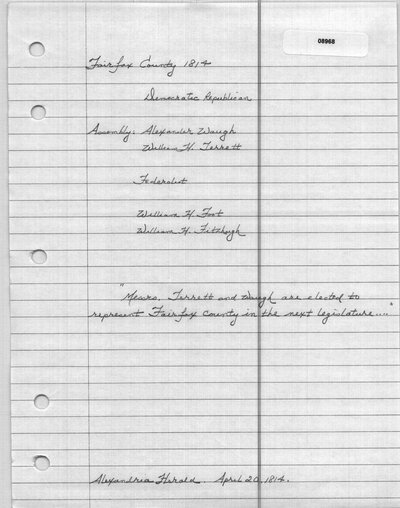 08968
Fairfax County 1814
Democratic Republican
Assembly: Alexander Waugh
William H. Terrett
Federalist
William H Foot
William H. Fitzhugh
"Messrs. Terrett and Waugh are elected to
represent Fairfax County in the next legislature...."
Alexandria Herald. April 20, 1814.